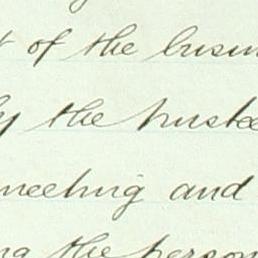 of the busin
by the trustee
meeting and
the person